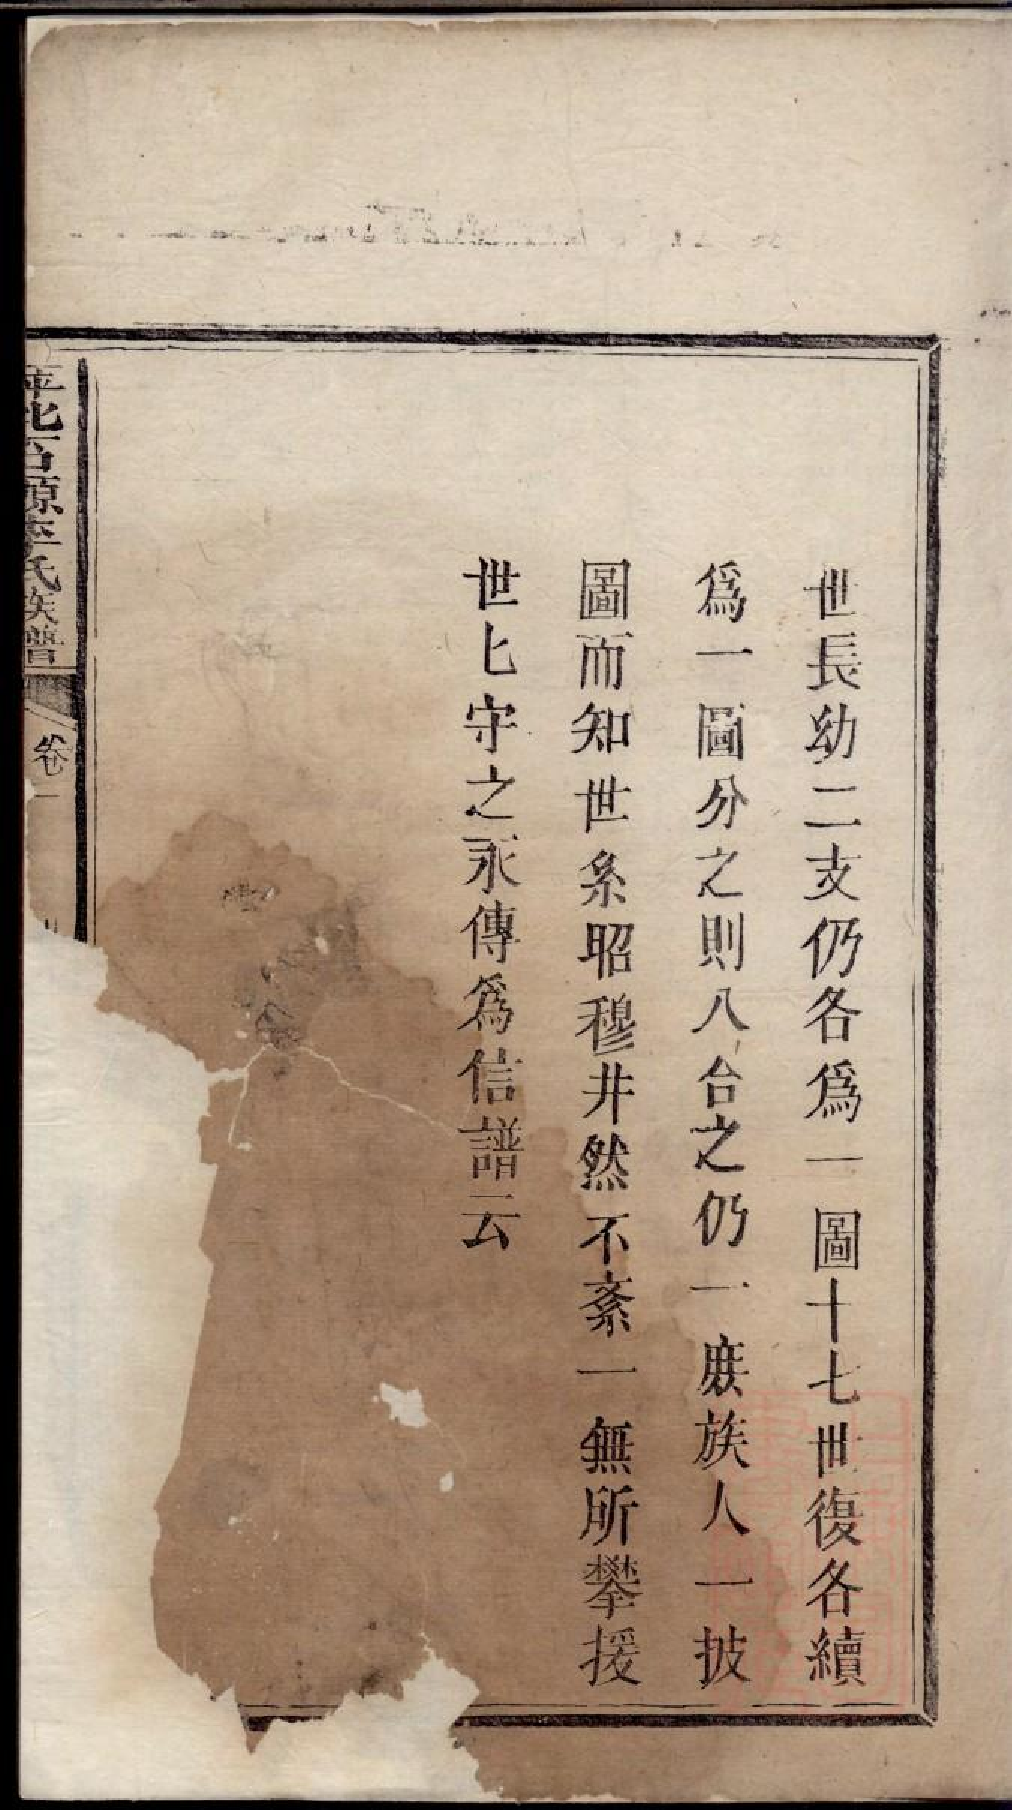 世長幼二支仍各爲一圖十七世復各續
爲一圖分之則八合之仍一族族人一披
圖而知世系昭穆井然不紊一無所攀援
世匕守之永傳爲信譜云
平北石源李氏族譜
卷一